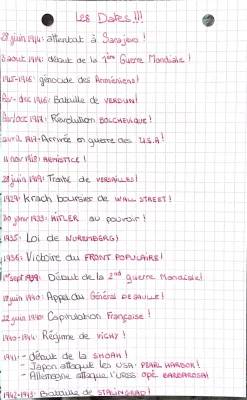 Les Dates !!!
28 juin 1914: attentat à Sarajevo !
3 aout 1914: début de la 1ère Guerre Mondiale !
1915-1916: génocide des Arméniens !
fév-déc 1916: Bataille de VERDUN !
1917: Révolution BOLCHEVIQUE !
avril 1917: Arrivée en guerre des U.S.A !
11 nov 1918: ARMISTICE !
28 juin 1919: Traité de VERSAILLES !
1929: Krach boursier de WALL STREET !
30 janv 1933: HITLER au pouvoir !
1935: Loi de NUREMBERG !
1936: Victoire du FRONT POPULAIRE !
1er sept 1939: Début de la 2nd guerre Mondiale !
18 juin 1940: Appel du Général DE GAULLE !
22 juin 1940: Capitulation Française !
1940-1944: Régime de VICHY !
1941: - début de la SHOAH !
- Japon attaque les USA: PEARL HARBOR !
- Allemagne attaque l'URSS: OPÉ BARBAROSSA !
1942-1943: Bataille de STALINGRAD !